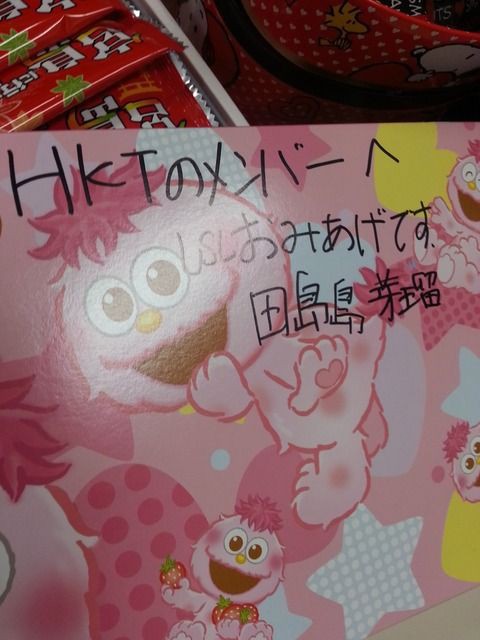 HKTのメンバーへ
USJおみあげです
田島島芽瑠